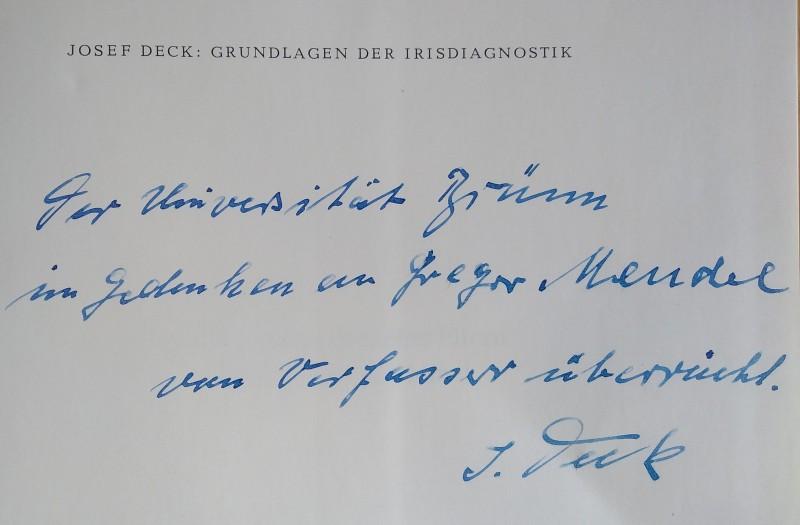 JOSEF DECK: GRUNDLAGEN DER IRISDIAGNOSTIK
Der Universität Brünn
im Gedenken an Gregor Mendel
vom Verfasser überreicht.
J. Deck